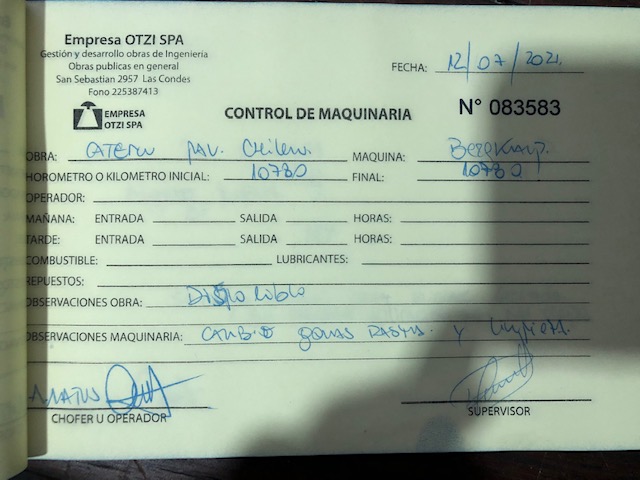 Empresa OTZI SPA
Gestión y desarrollo obras de Ingeniería
Obras publicas en general
San Sebastian 2957 Las Condes
Fono 225387413
EMPRESA
OTZI SPA
FECHA: 12/07/2021
CONTROL DE MAQUINARIA N° 083583
OBRA: MAQUINA:
HOROMETRO O KILOMETRO INICIAL: 10780 FINAL: 10780
OPERADOR:
MAÑANA: ENTRADA SALIDA HORAS:
TARDE: ENTRADA SALIDA HORAS:
COMBUSTIBLE: LUBRICANTES:
REPUESTOS:
OBSERVACIONES OBRA:
OBSERVACIONES MAQUINARIA: cambio gomas
CHOFER U OPERADOR SUPERVISOR